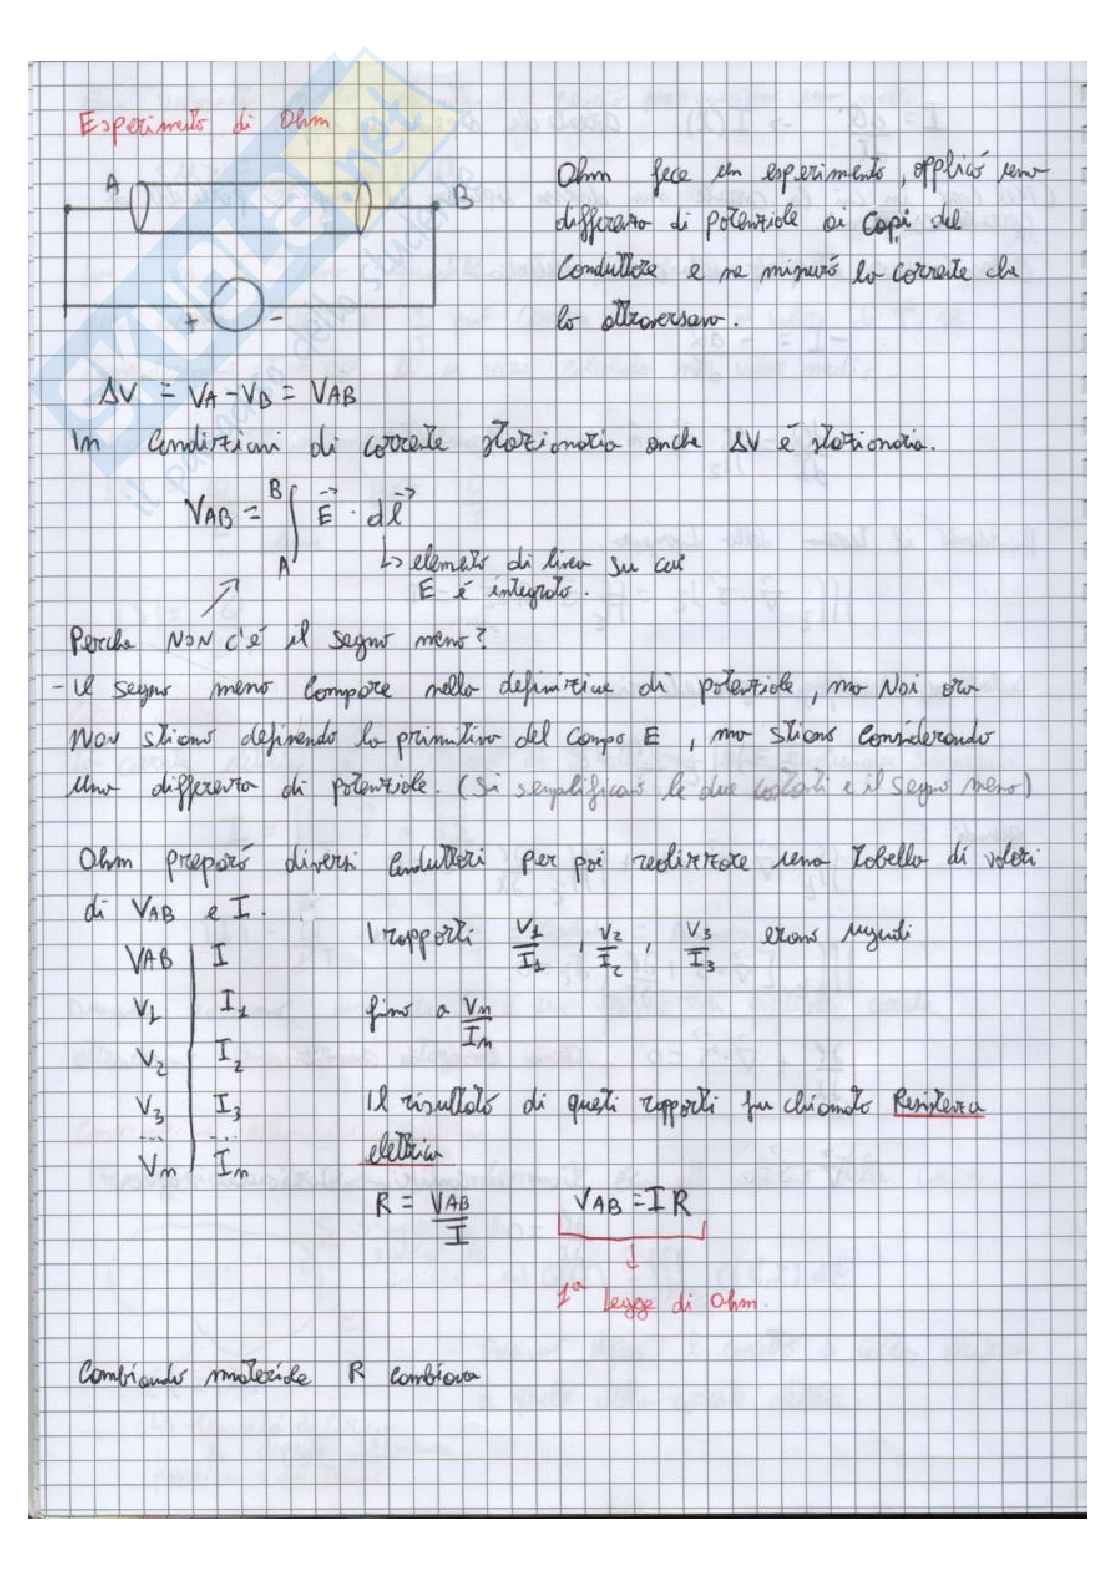 Esperimento di Ohm
A
B
+ -
Ohm fece un esperimento, applicó una
differenza di potenziale ai Capi del
Conduttore e ne misuró la corrente che
lo attraversava.
ΔV = VA - VB = VAB
In Condizioni di corrente stazionaria anche ΔV é stazionaria.
VAB = ∫ᴬᴮ E⃗ · dl⃗
↳ elemento di linea su cui
E é integrato.
Perche NON c'é il segno meno?
- Il segno meno Compare nella definizione di potenziale, ma Noi ora
Non stiamo definendo la primitiva del Campo E, ma stiamo Considerando
Una differenza di potenziale. (Si semplificano le due costanti e il segno meno)
Ohm preparó diversi Conduttori per poi realizzare una tabella di valori
di VAB e I.
VAB | I
V1 | I1
V2 | I2
V3 | I3
... | ...
Vn | In
I rapporti V1/I1, V2/I2, V3/I3 erano uguali
fino a Vn/In
Il risultato di questi rapporti fu chiamato Resistenza
elettrica
R = VAB/I VAB = I R
1ª Legge di Ohm.
Cambiando materiale R cambiava
SKUOLA.net
il paradiso dello studente